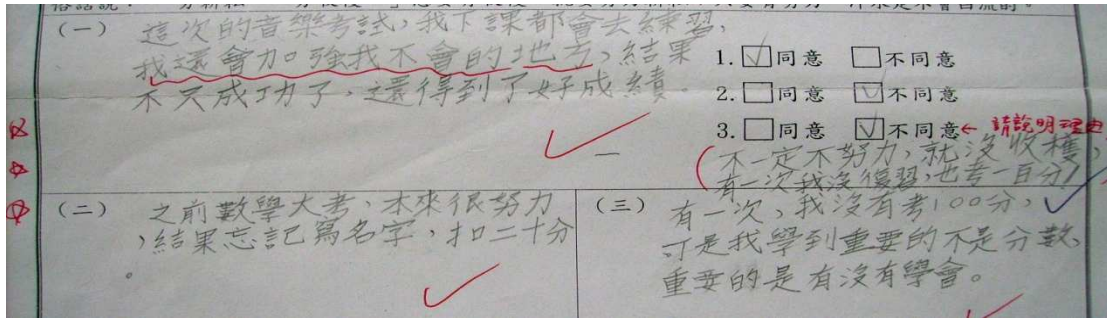 (一) 這次的音樂考試,我下課都會去練習,
我還會加強我不會的地方,結果
不只成功了,還得到了好成績。
1.☑同意 □不同意
2.□同意 ☑不同意
3.□同意 ☑不同意←請說明理由
(不一定不努力,就沒收穫,
有一次我沒復習,也考一百分!)
(二) 之前數學大考,本來很努力
,結果忘記寫名字,扣二十分
。
(三) 有一次,我沒有考100分,
可是我學到重要的不是分數,
重要的是有沒有學會。